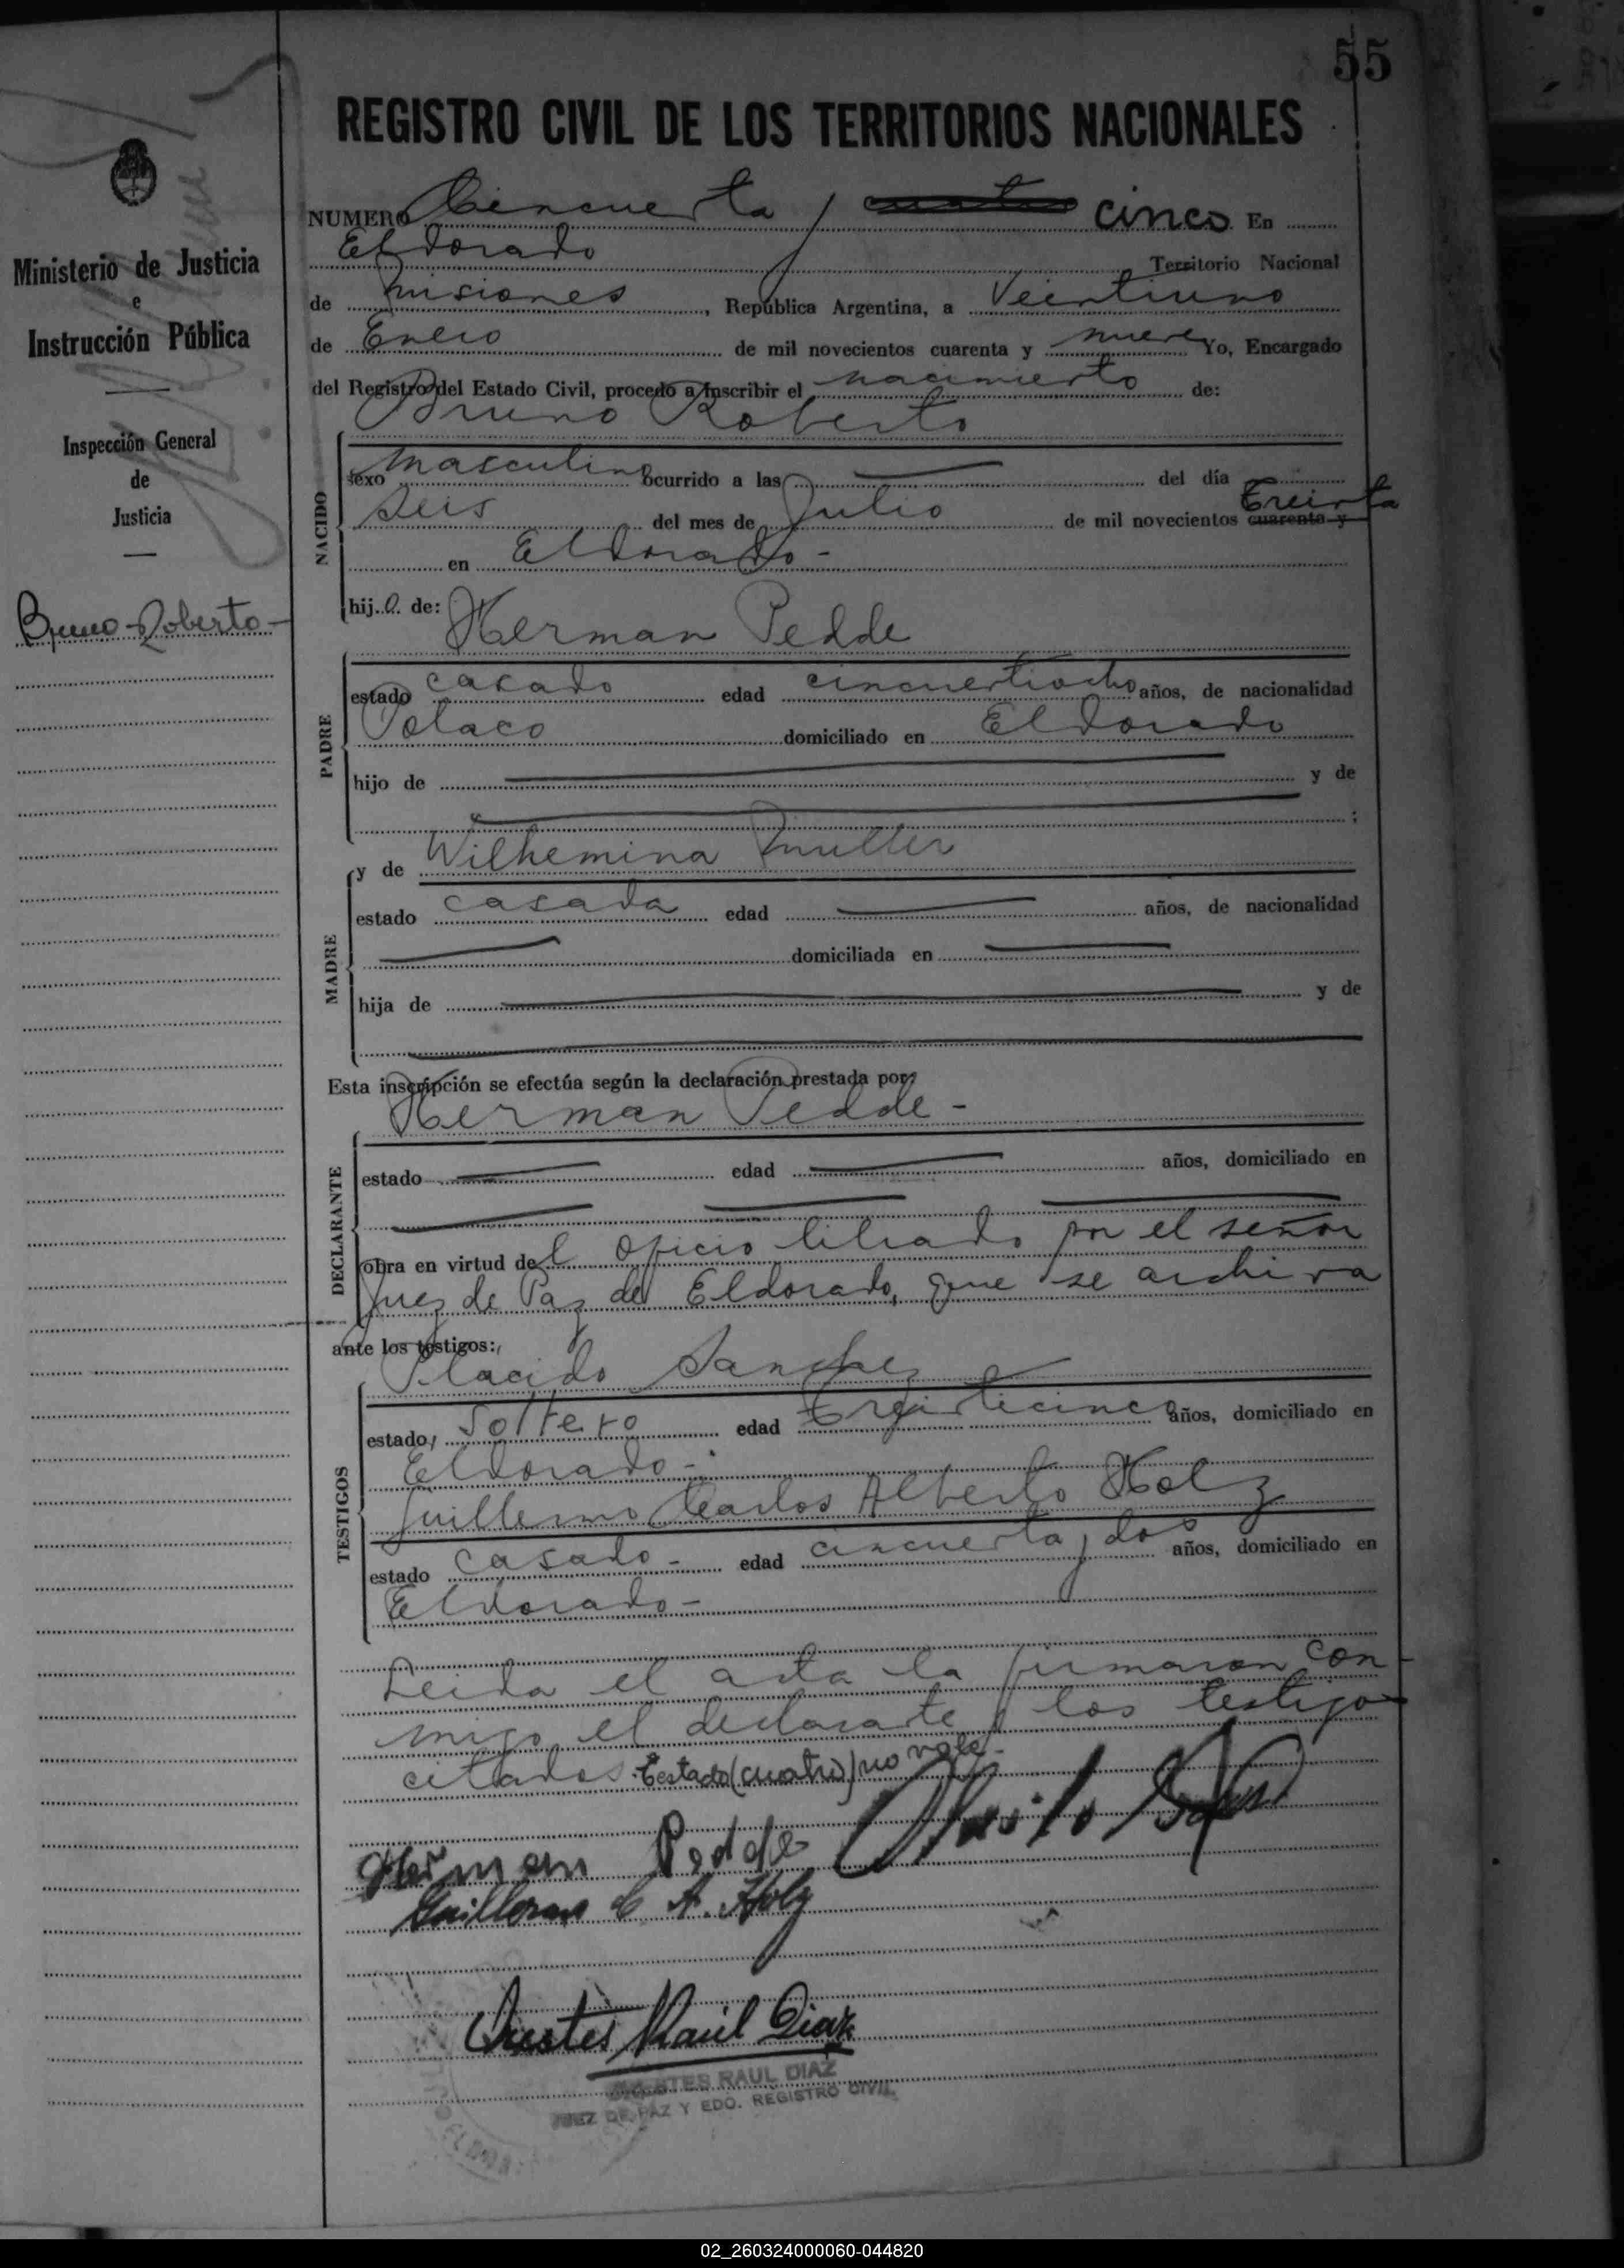 55
REGISTRO CIVIL DE LOS TERRITORIOS NACIONALES
Ministerio de Justicia
e
Instrucción Pública
Inspección General
de
Justicia
Bruno Roberto -
NUMERO Cincuenta y cuatro cinco En
Eldorado Territorio Nacional
de Misiones, República Argentina, a Veintiuno
de Enero de mil novecientos cuarenta y nueve Yo, Encargado
del Registro del Estado Civil, procedo a inscribir el nacimiento de:
Bruno Roberto
NACIDO
sexo masculino ocurrido a las del día
seis del mes de Julio de mil novecientos cuarenta y Treinta
en Eldorado -
hijo de: Herman Pedde
PADRE
estado casado edad cincuentiocho años, de nacionalidad
Polaco domiciliado en Eldorado
hijo de y de
;
MADRE
y de Wilhemina Muller
estado casada edad años, de nacionalidad
domiciliada en
hija de y de
Esta inscripción se efectúa según la declaración prestada por:
Herman Pedde -
DECLARANTE
estado edad años, domiciliado en
obra en virtud del oficio librado por el señor
Juez de Paz de Eldorado, que se archiva
ante los testigos:
Placido Sanchez
TESTIGOS
estado, soltero edad Treinticinco años, domiciliado en
Eldorado -
Guillermo Carlos Alberto Holz
estado casado - edad cincuenta y dos años, domiciliado en
Eldorado -
Leida el acta la firmaron con-
migo el declarante y los testigos
citados. Testado (cuatro) no vale -
Herman Pedde
Guillermo C. A. Holz
Orestes Raúl Diaz
ORESTES RAUL DIAZ
JUEZ DE PAZ Y EDO. REGISTRO CIVIL
02_260324000060-044820